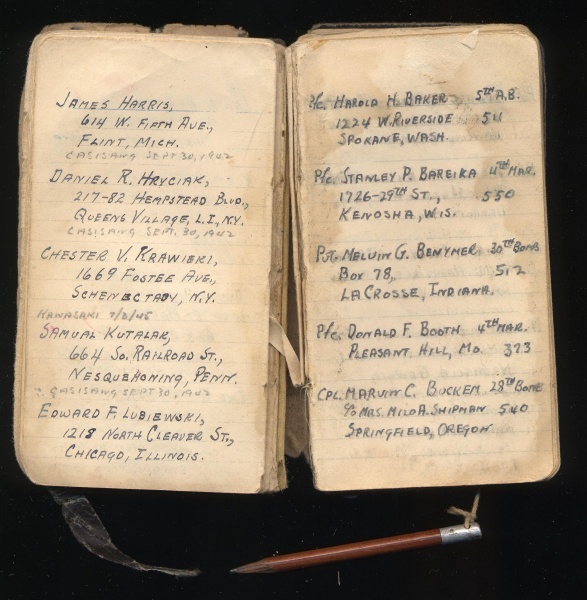 JAMES HARRIS,
614 W. FIFTH AVE.,
FLINT, MICH.
CASISANG SEPT 30, 1942
DANIEL R. HRYCIAK,
217-82 HEMPSTEAD BLVD.,
QUEENS VILLAGE, L.I., N.Y.
CASISANG SEPT. 30, 1942
CHESTER V. KRAWIEKI,
1669 FOSTER AVE.,
SCHENECTADY, N.Y.
KAWASAKI 7/3/45
SAMUAL KUTALAK,
664 SO. RAILROAD ST.,
NESQUEHONING, PENN.
CASISANG SEPT 30, 1942
EDWARD F. LUBIEWSKI,
1218 NORTH CLEAVER ST.,
CHICAGO, ILLINOIS.
P/C. HAROLD H. BAKER 5TH A.B.
1224 W. RIVERSIDE 511
SPOKANE, WASH.
P/C. STANLEY P. BAREIKA 4TH MAR.
1726-29TH ST., 550
KENOSHA, WIS.
PVT. MELVIN G. BENYMER 30TH BOMB
BOX 78, 512
LA CROSSE, INDIANA.
P/C. DONALD F. BOOTH 4TH MAR.
PLEASANT HILL, MO. 373
CPL. MARVIN C. BUCKEM 28TH BOMB
C/O MRS. MILO A. SHIPMAN 540
SPRINGFIELD, OREGON